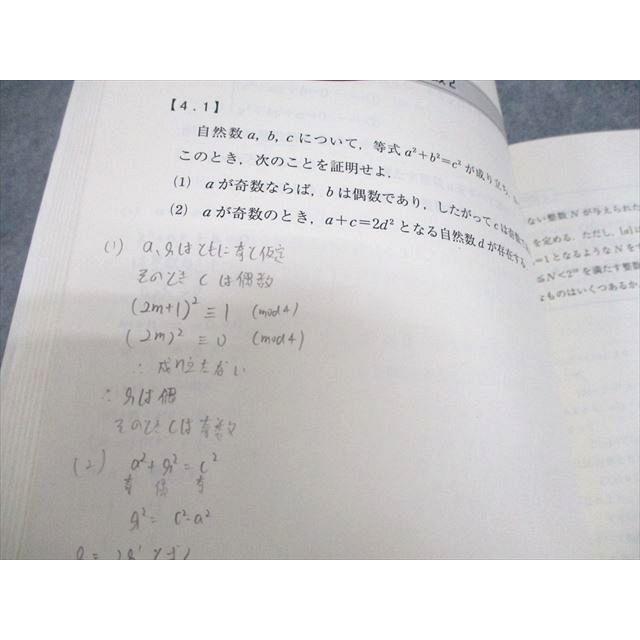 【4.1】
自然数 a, b, c について，等式 a²+b²=c² が成り立ち，
このとき，次のことを証明せよ．
(1) a が奇数ならば，b は偶数であり，したがって c は奇数
(2) a が奇数のとき，a+c=2d² となる自然数 d が存在する
(1) a, b はともに奇と仮定
そのとき c は偶数
(2m+1)² ≡ 1 (mod 4)
(2m)² ≡ 0 (mod 4)
∴ 成り立たない
∴ b は偶
そのとき c は奇数
(2) a²+b²=c²
奇 偶 奇
b² = c²-a²
ない整数 N が与えられた
を定める．ただし，[a] は
=1 となるような N を
≦N<2ᵐ を満たす整数
なものはいくつあるか．